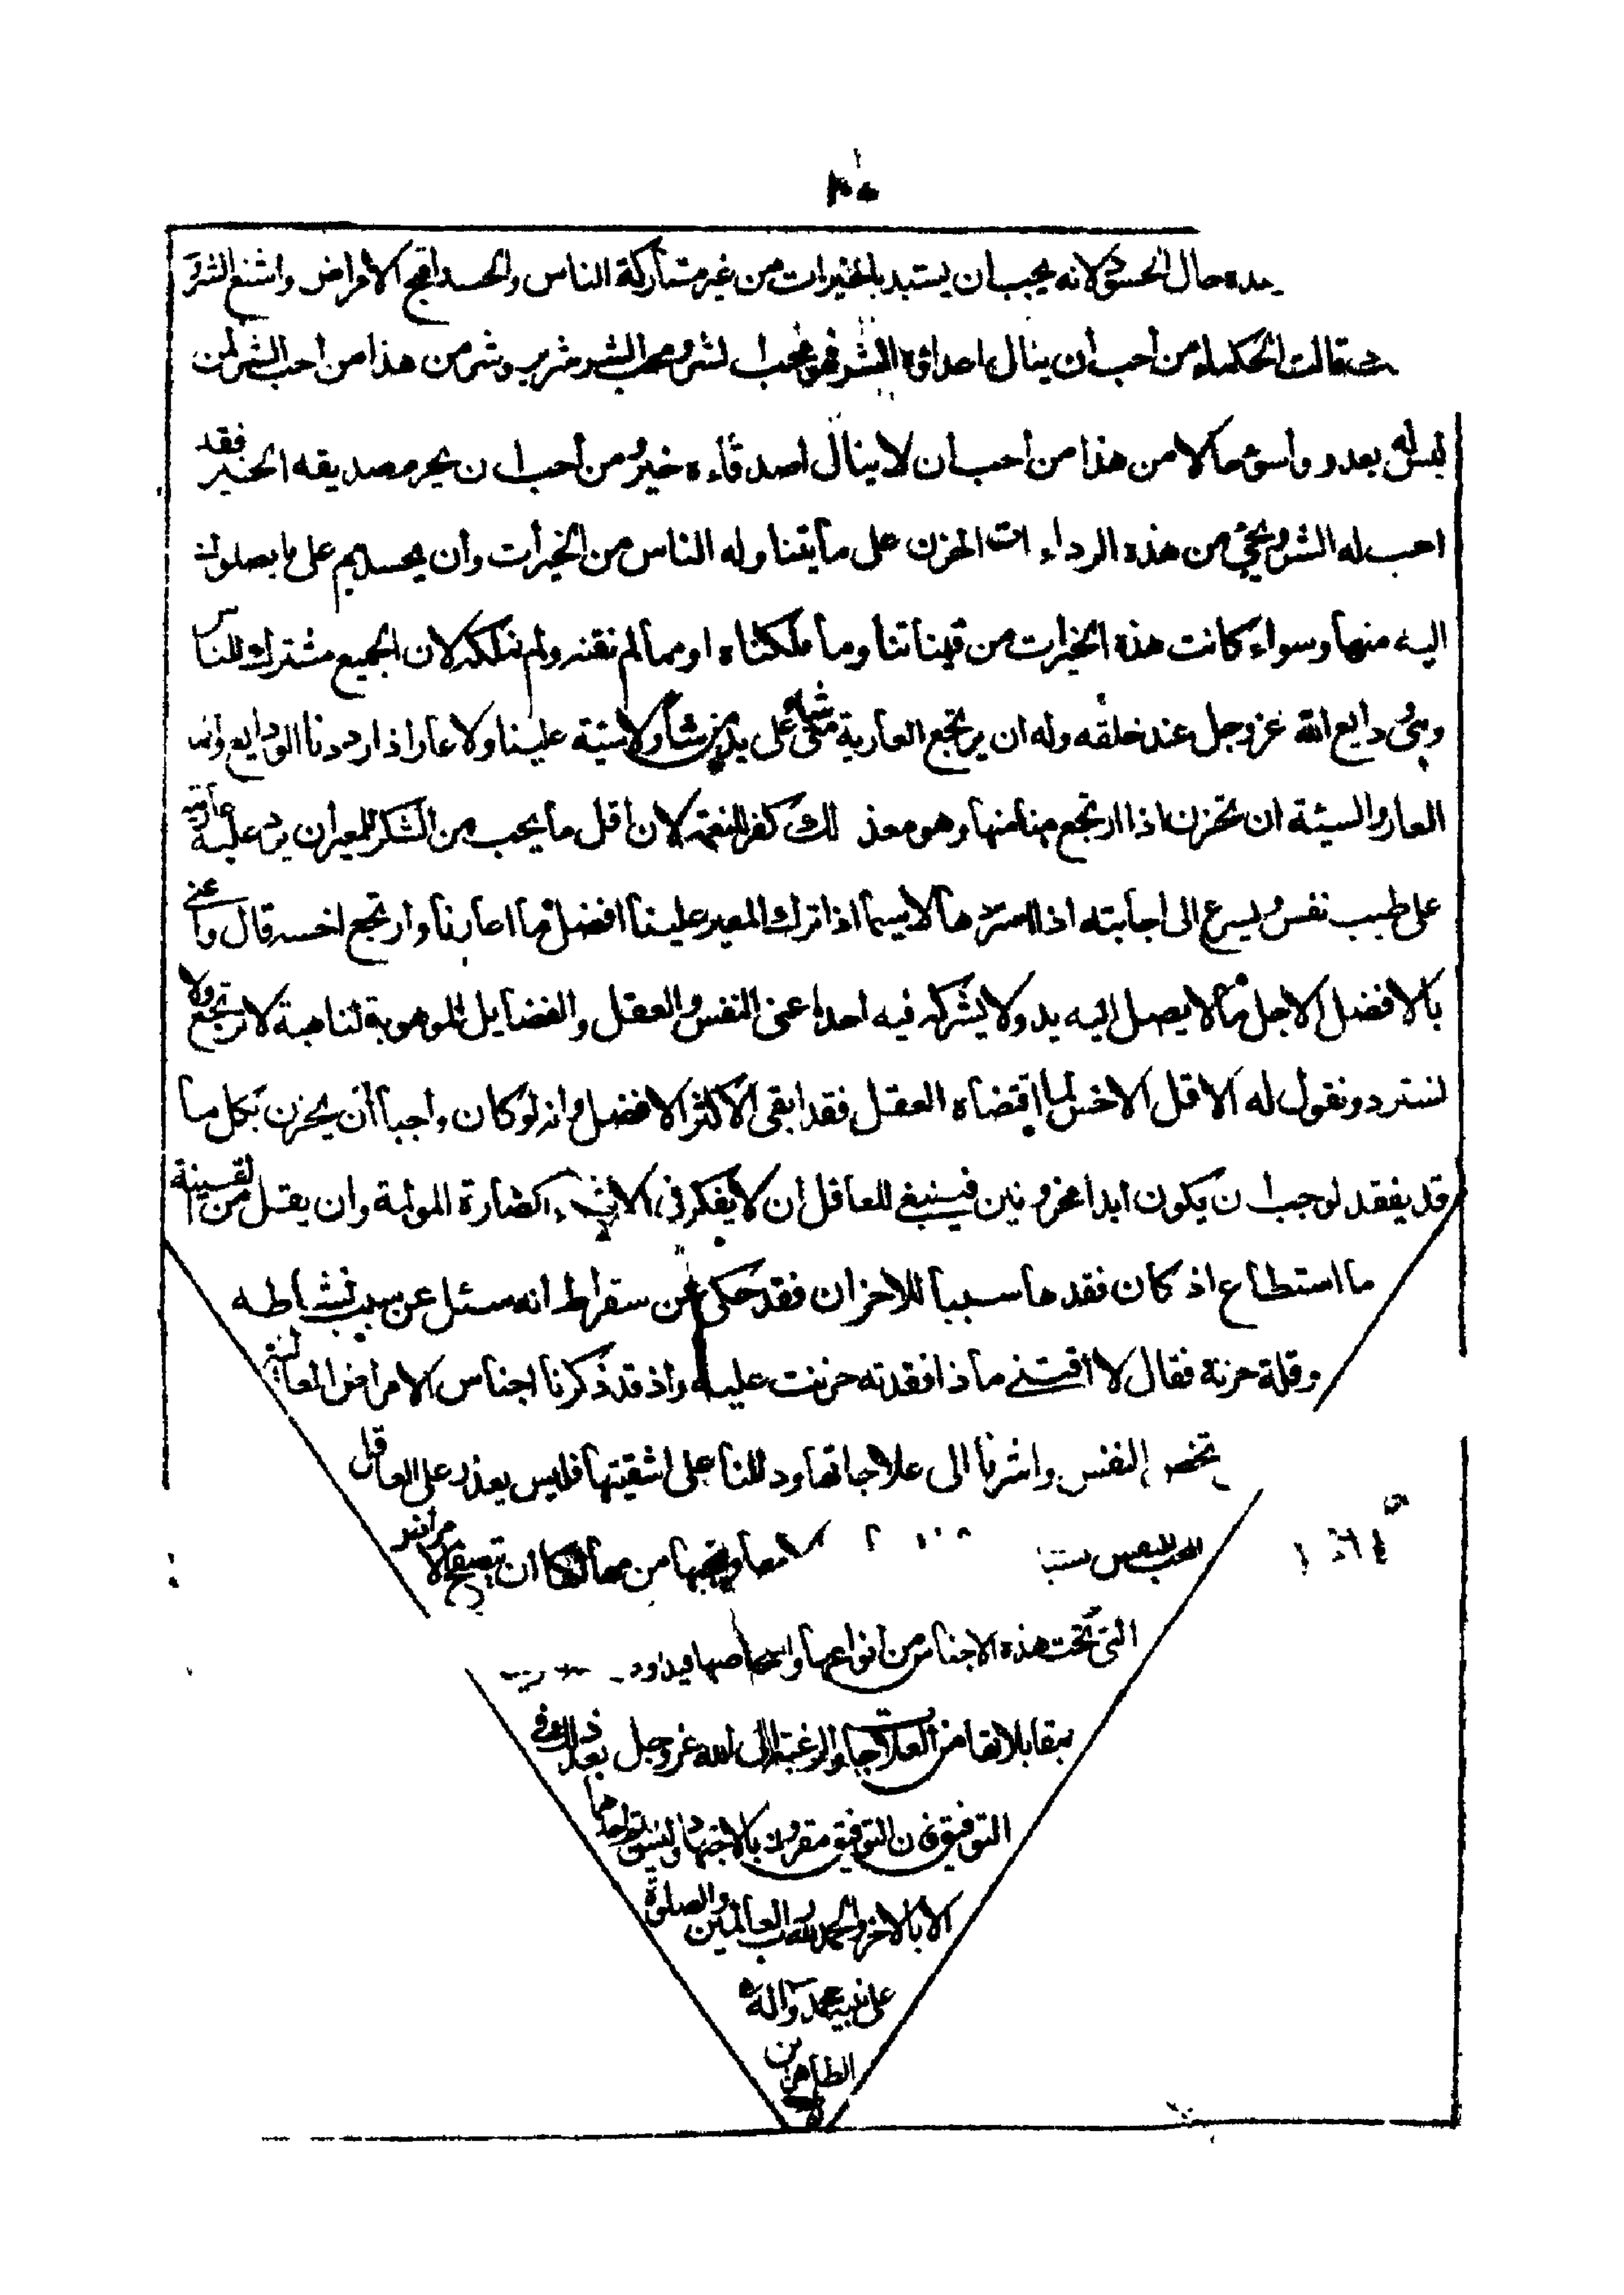 حال الحسود لانه يحب ان يستبد بالخيرات من غير مشاركة الناس والحسد اقبح الامراض واشنع الشرور
قالت الحكماء من احب ان ينال اعداؤه الشر فهو محب لشر ومحب الشر شرير وشر من هذا من احب الشر لمن
ليس له بعدو واسوء حالا من هذا من احب ان لا ينال اصدقاءه خير ومن احب ان يحرم صديقه الخير فقد
احب له الشر ويجئ من هذه الرداءات الحزن على ما يتناوله الناس من الخيرات وان يحسدهم على ما يصلون
اليه منها وسواء كانت هذه الخيرات من قيناتنا وما ملكناه او مما لم نقتنه ولم نملكه لان الجميع مشترك للناس
وهى ودايع الله عز وجل عند خلقه وله ان يرتجع العارية متى شاء على يد من شاء ولا سيئة علينا ولا عار اذا رددنا الودايع وانما
العار والسيئة ان نحزن اذا ارتجع منا منها وهو مع ذلك كفر للنعمة لان اقل ما يجب من الشكر للمعير ان يرد عليه عاريته
على طيب نفس ويسرع الى اجابته اذا استردها لا سيما اذا ترك المعير علينا افضل ما اعارنا وارتجع اخسه قال واعنى
بالافضل الاجل ما لا يصل اليه يد ولا يشركه فيه احد اعنى النفس والعقل والفضايل الموهوبة لنا هبة لا ترتجع ولا
تسترد ونقول له الاقل الاخس لما اقتضاه العقل فقد ابقى الاكثر الافضل وانه لو كان واجبا ان يحزن بكل ما
قد يفقد لوجب ان يكون ابدا محزونين فينبغى للعاقل ان لا يفكر فى الاشياء الضارة المولمة وان يقل من القنية
ما استطاع اذ كان فقدها سببا للاحزان فقد حكى عن سقراط انه سئل عن سبب نشاطه
وقلة حزنه فقال لا اقتنى ما اذا فقدته حزنت عليه واذ قد ذكرنا اجناس الامراض الغالبة
تخص النفس واشرنا الى علاجاتها ودللنا على اشفيتها فليس يعذر على العاقل
المحب لنفسه من ان يتصفح الامراض
التى تحت هذه الاجناس من انواعها واشخاصها فيداوى
بمقابلاتها من العلاجات والرغبة الى الله عز وجل بعد ذلك فى
التوفيق فان التوفيق مقرون بالاجتهاد وليس يتم احدهما
الا بالاخر والحمد لله رب العالمين والصلوة
على نبيه محمد وآله
الطاهرين